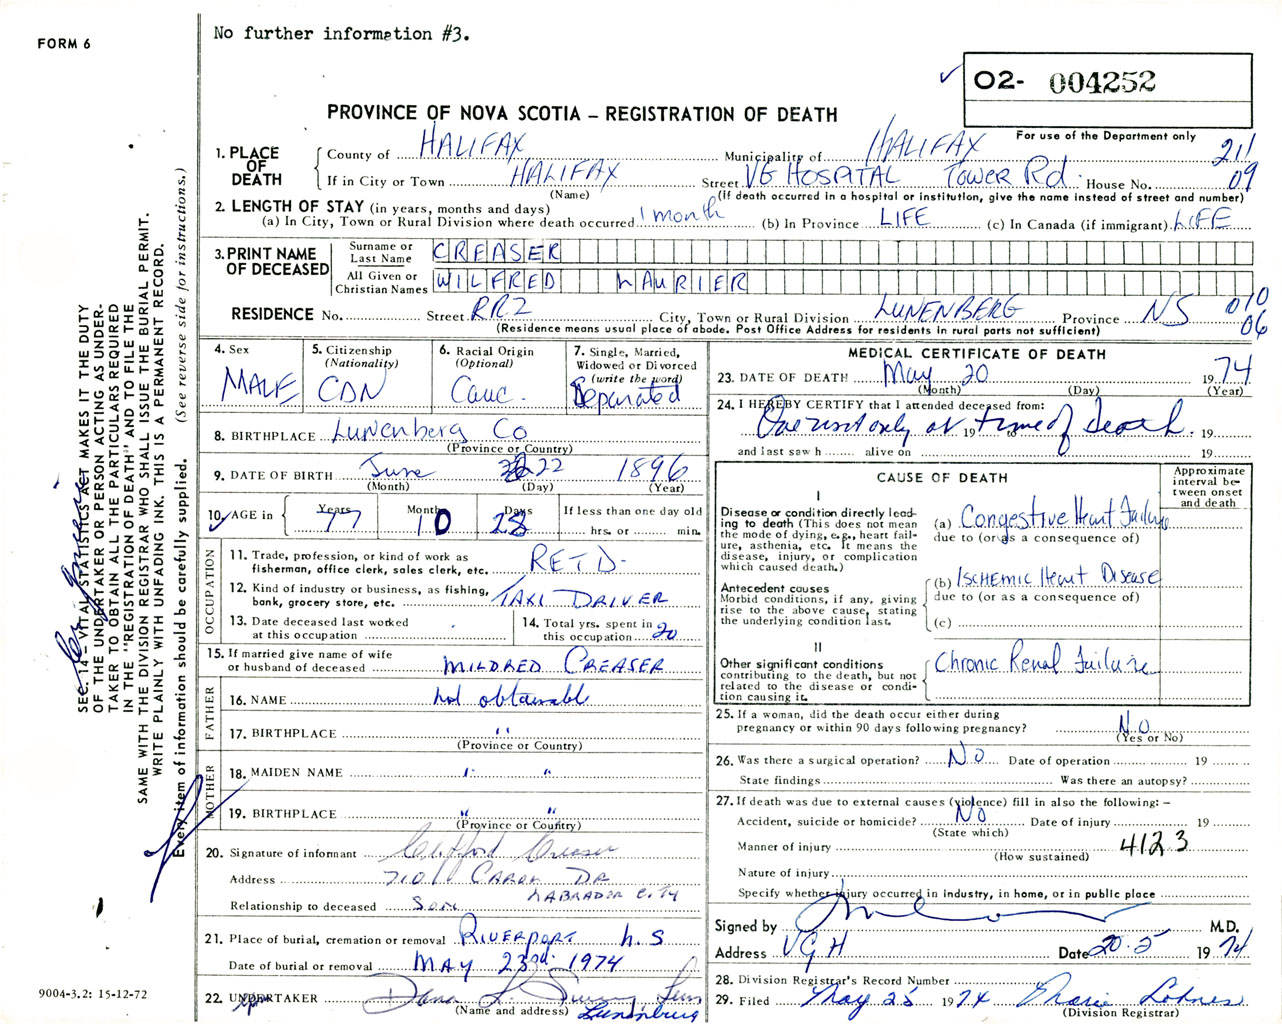 FORM 6
No further information #3.
02- 004252
For use of the Department only
PROVINCE OF NOVA SCOTIA – REGISTRATION OF DEATH
1. PLACE OF DEATH
County of HALIFAX Municipality of HALIFAX 211
If in City or Town HALIFAX Street VG HOSPITAL Tower Rd. House No. 09
(Name) (If death occurred in a hospital or institution, give the name instead of street and number)
2. LENGTH OF STAY (in years, months and days)
(a) In City, Town or Rural Division where death occurred 1 month (b) In Province LIFE (c) In Canada (if immigrant) LIFE
3. PRINT NAME OF DECEASED
Surname or Last Name CREASER
All Given or Christian Names WILFRED LAURIER
RESIDENCE No. Street RR2 City, Town or Rural Division LUNENBERG Province NS 010 06
(Residence means usual place of abode. Post Office Address for residents in rural parts not sufficient)
4. Sex MALE
5. Citizenship (Nationality) CDN
6. Racial Origin (Optional) Cauc.
7. Single, Married, Widowed or Divorced (write the word) Separated
8. BIRTHPLACE Lunenberg Co
(Province or Country)
9. DATE OF BIRTH June 22 1896
(Month) (Day) (Year)
10. AGE in Years 77 Months 10 Days 28 If less than one day old
hrs. or min.
OCCUPATION
11. Trade, profession, or kind of work as fisherman, office clerk, sales clerk, etc. RET'D.
12. Kind of industry or business, as fishing, bank, grocery store, etc. TAXI DRIVER
13. Date deceased last worked at this occupation
14. Total yrs. spent in this occupation 20
15. If married give name of wife or husband of deceased MILDRED CREASER
FATHER
16. NAME Not obtainable
17. BIRTHPLACE "
(Province or Country)
MOTHER
18. MAIDEN NAME " "
19. BIRTHPLACE " "
(Province or Country)
20. Signature of informant Clifford Creaser
Address CAROL DR LABRADOR CITY
Relationship to deceased SON
21. Place of burial, cremation or removal RIVERPORT N.S
Date of burial or removal MAY 23rd 1974
22. UNDERTAKER Dana L. Lunenburg
(Name and address)
MEDICAL CERTIFICATE OF DEATH
23. DATE OF DEATH May 20 1974
(Month) (Day) (Year)
24. I HEREBY CERTIFY that I attended deceased from:
One visit only at 19 to time of Death. 19
and last saw h alive on 19
CAUSE OF DEATH
Approximate interval between onset and death
I
Disease or condition directly leading to death (This does not mean the mode of dying, e.g., heart failure, asthenia, etc. It means the disease, injury, or complication which caused death.)
(a) Congestive Heart Failure
due to (or as a consequence of)
Antecedent causes
Morbid conditions, if any, giving rise to the above cause, stating the underlying condition last.
(b) Ischemic Heart Disease
due to (or as a consequence of)
(c)
II
Other significant conditions contributing to the death, but not related to the disease or condition causing it.
Chronic Renal Failure
25. If a woman, did the death occur either during pregnancy or within 90 days following pregnancy? No
(Yes or No)
26. Was there a surgical operation? No Date of operation 19
State findings Was there an autopsy?
27. If death was due to external causes (violence) fill in also the following: –
Accident, suicide or homicide? No Date of injury 19
(State which)
Manner of injury 4123
(How sustained)
Nature of injury
Specify whether injury occurred in industry, in home, or in public place
Signed by M.D.
Address VGH Date 20.5 1974
28. Division Registrar's Record Number
29. Filed May 25 1974 Marie Lohnes
(Division Registrar)
SEC. 14 – VITAL STATISTICS ACT MAKES IT THE DUTY
OF THE UNDERTAKER OR PERSON ACTING AS UNDER-
TAKER TO OBTAIN ALL THE PARTICULARS REQUIRED
IN THE "REGISTRATION OF DEATH" AND TO FILE THE
SAME WITH THE DIVISION REGISTRAR WHO SHALL ISSUE THE BURIAL PERMIT.
WRITE PLAINLY WITH UNFADING INK. THIS IS A PERMANENT RECORD.
Every item of information should be carefully supplied. (See reverse side for instructions.)
9004-3.2: 15-12-72